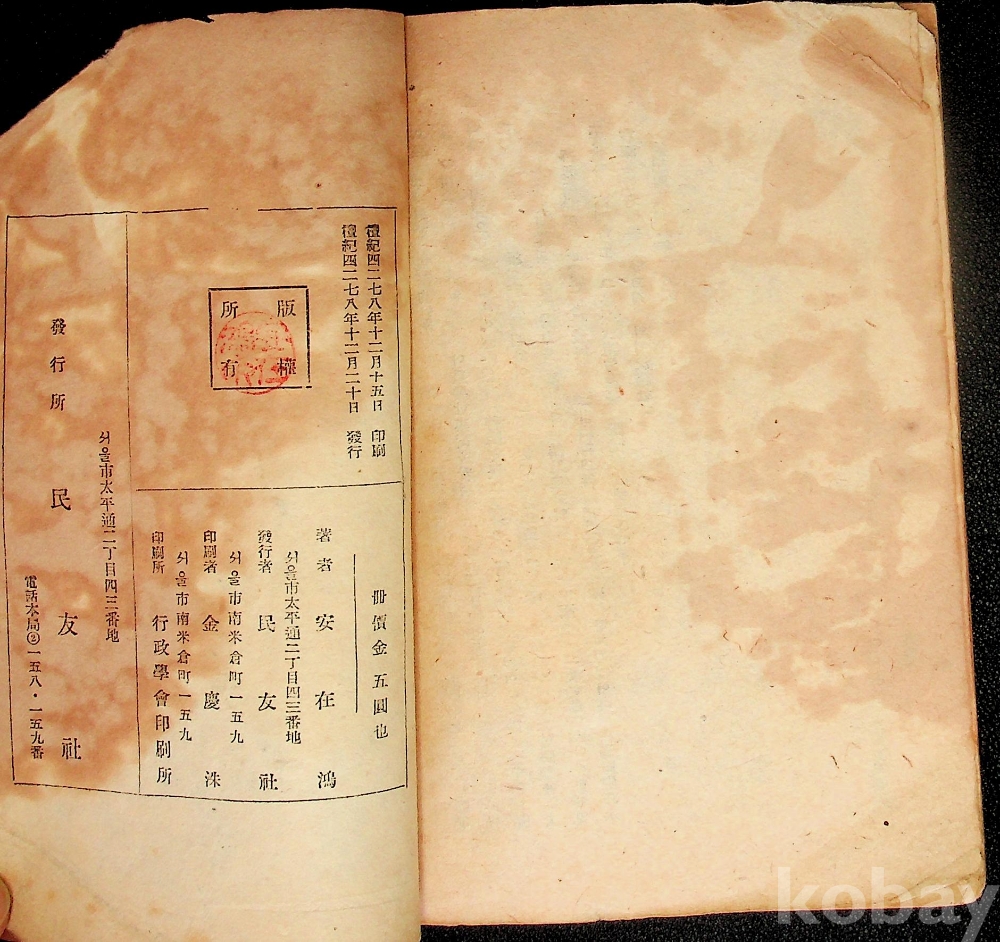 檀紀四二七八年十二月十五日 印刷
檀紀四二七八年十二月二十日 發行
版權
所有
冊價金 五圓也
著者 安在鴻
서울市太平通二丁目四三番地
發行者 民友社
서울市南米倉町一五九
印刷者 金慶洙
서울市南米倉町一五九
印刷所 行政學會印刷所
서울市太平通二丁目四三番地
發行所 民友社
電話本局②一五八・一五九番
kobay